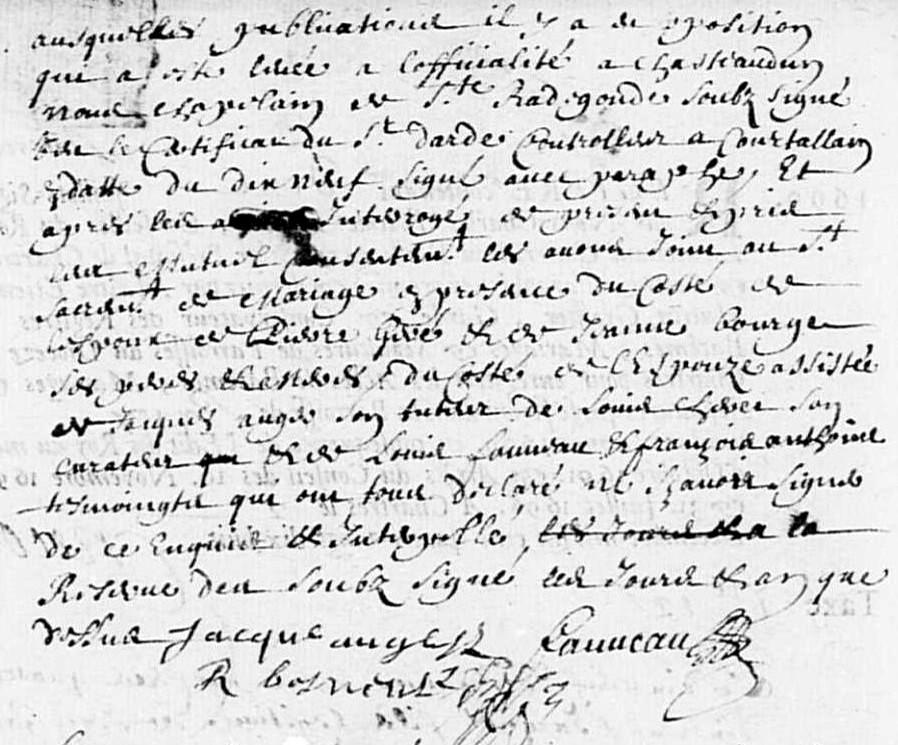 ausquelles publications il y a eu oposition
qui a esté levée a lofficialité a Chasteaudun
nous chapelain de Ste Radegonde soubz signé
le certificat du Sr darde Controlleur a Courtallain
datté du dix neuf signé avec paraphe, Et
apres les a Interrogé et pris
leur Mutuel Consentemt les avons Joint au St
Sacremt de Mariage en presence du costé de
lespoux de Pierre et de Jeanne bourge
ses pere et mere, du costé de lEspouze assistée
de Jaques auge son tuteur de son
curateur et de Louis Launeau et françois anthoine
tesmoingts qui ont tous declaré ne sçavoir signé
De ce Enquis et Interpellé,
Reserve des soubz signé les Jours et an que
dessus Jacque auges Launeau
R